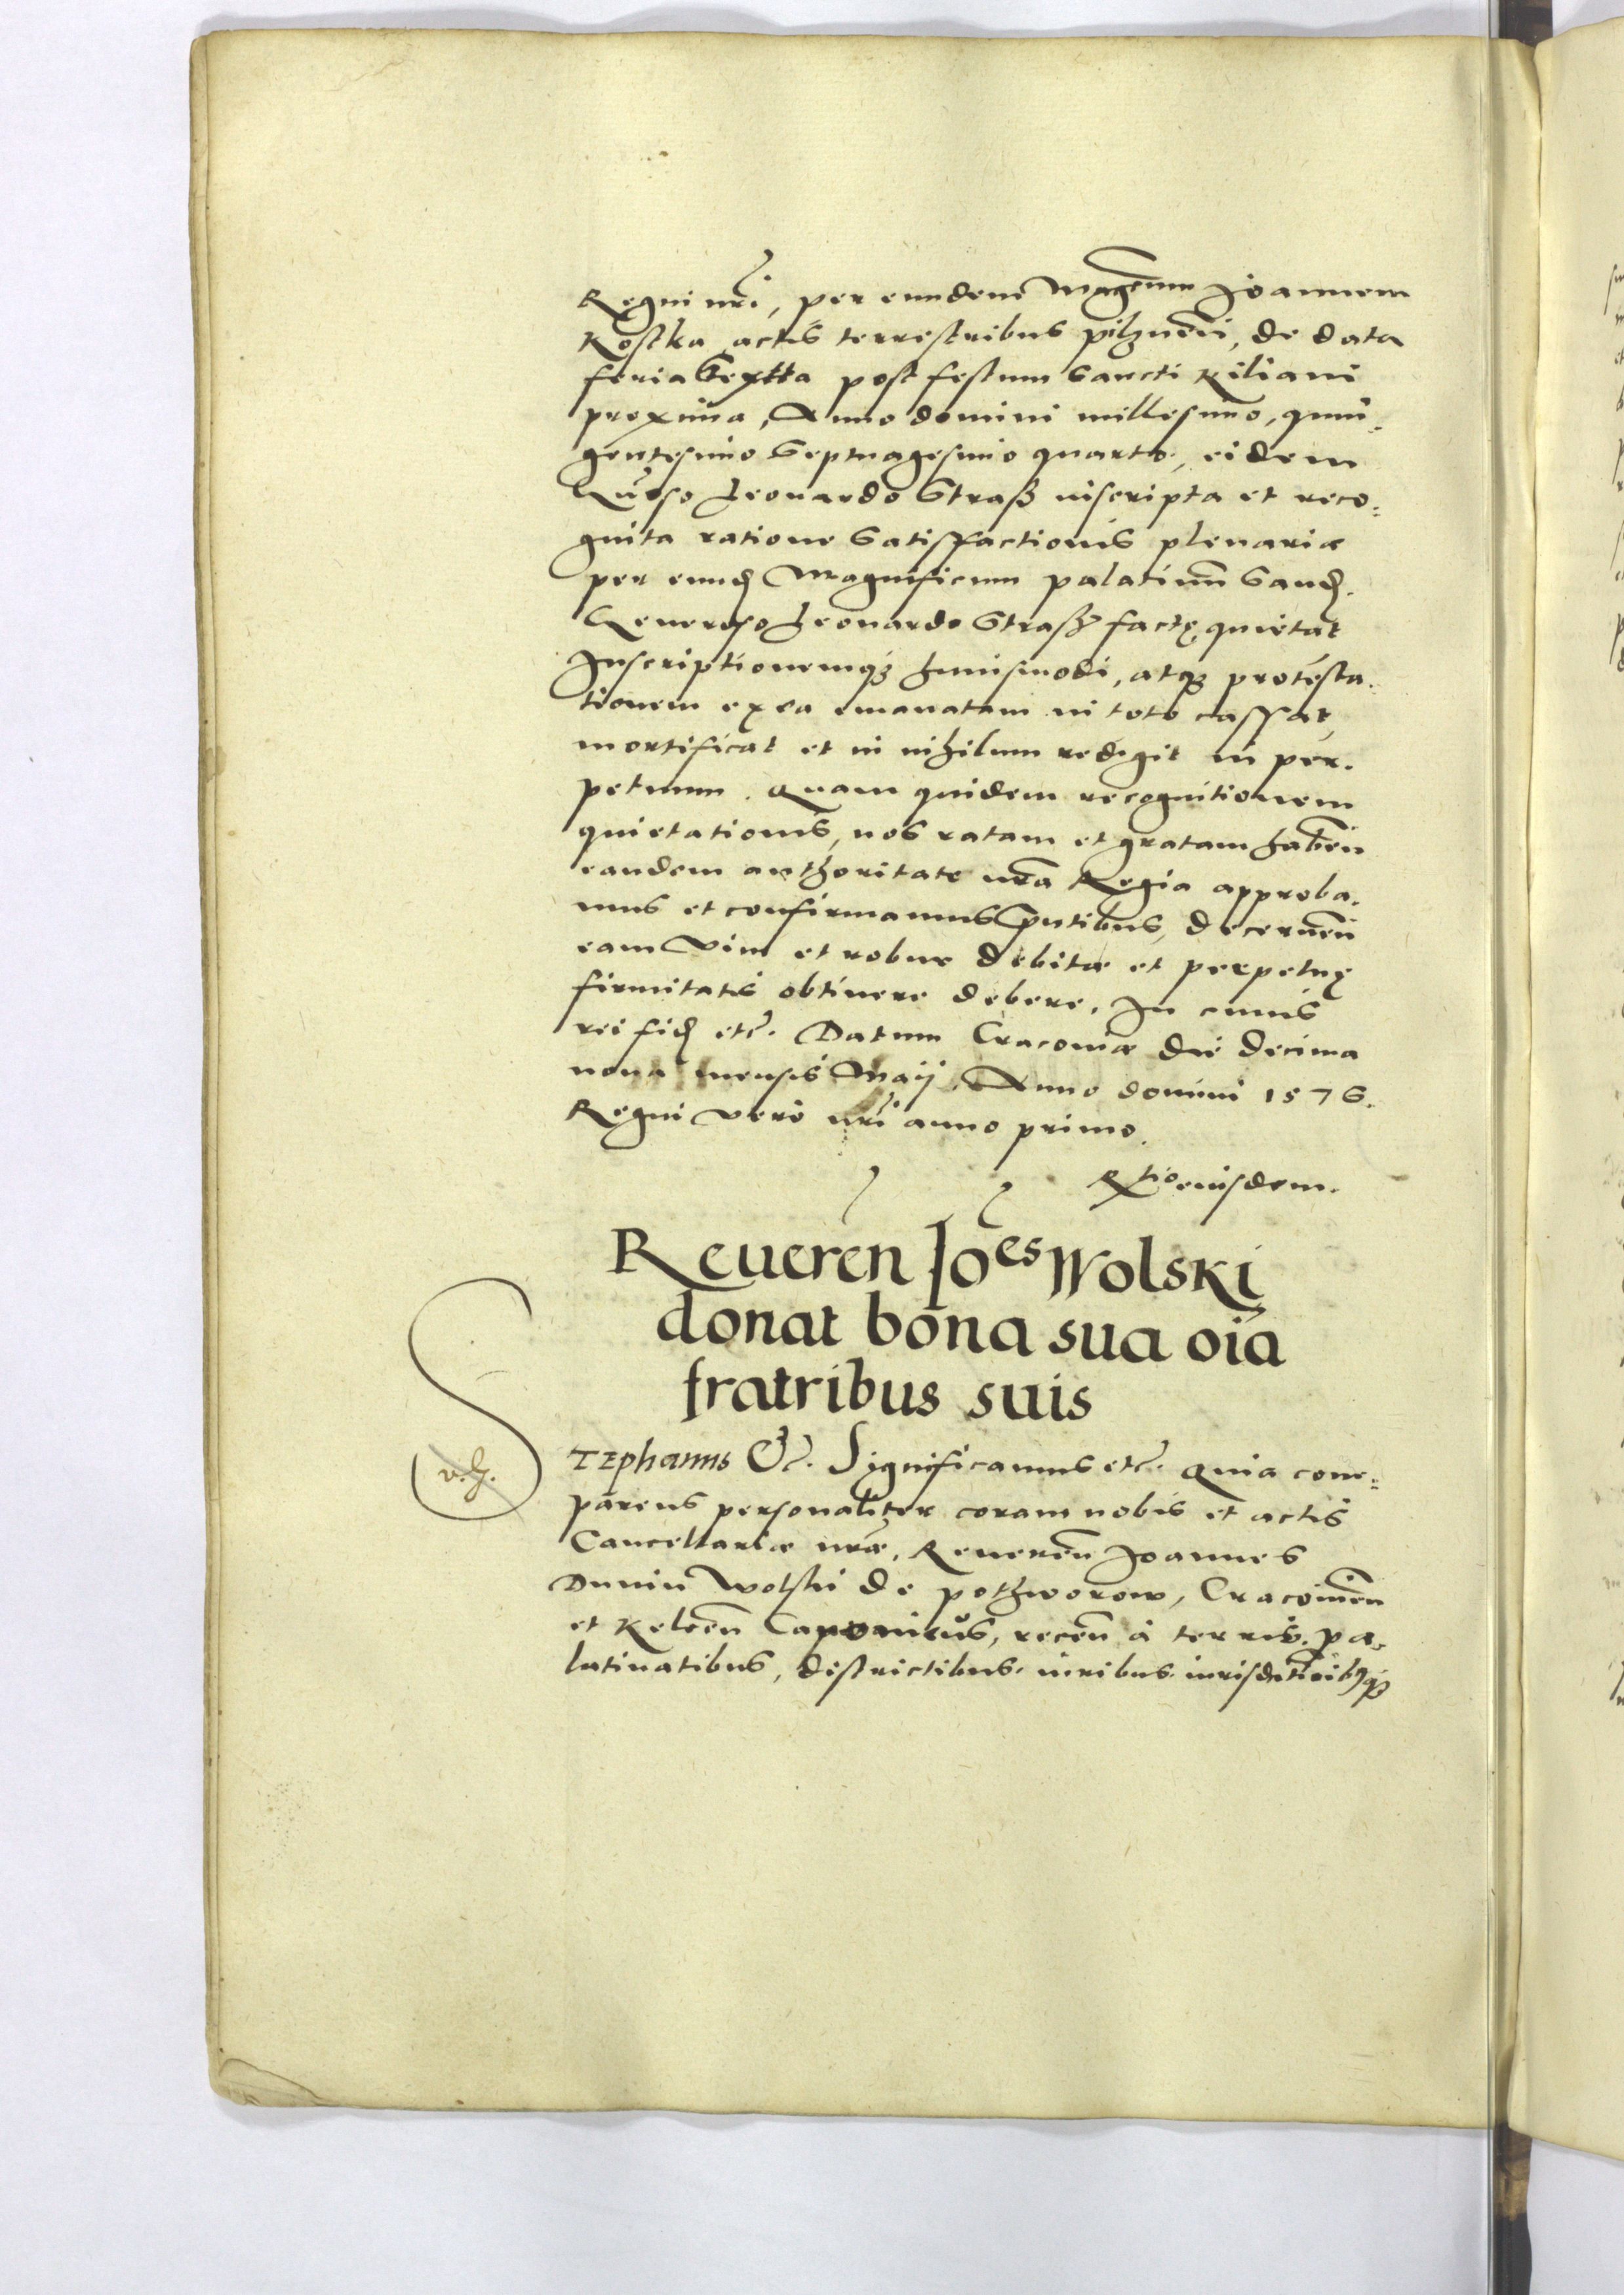 Regni nri, per eundem Magcum Joannem
Kostka actis terrestribus pilznen, de data
feria Sextta post festum Sancti Kiliani
proxima, Anno domini millesimo, quin=
gentesimo Septuagesimo quarto, eidem
Gnoso Leonardo Straß inscripta et reco=
gnita ratione Satisfactionis plenariæ
per eund Magnificum palatinum Sand.
Generoso Leonardo Straß factę, quietat
Inscriptionemq3 huiusmodi, atq3 protesta.
tionem ex ea emanatam in toto cassat,
mortificat et in nihilum redigit in per.
petuum. Quam quidem recognitionem
quietationis, nos ratam et gratam haben
eandem authoritate nra Regia approba.
mus et confirmamus pntibus, decernen
eam vim et robur debitæ et perpetuę
firmitatis obtinere debere, In cuius
rei fid etc. Datum Cracoviæ die decima
nona mensis Maij. Anno domini 1576.
Regni vero nri anno primo.
Rtio eiusdem.
Reueren Joes Wolski
donat bona sua oia
fratribus suis
STEphanus &c. Significamus etc. Quia com=
parens personaliter coram nobis et actis
Cancellariæ nræ, Reueren Joannes
Dunin Wolski de pothworow, Cracouien
et Kelcen Canonicus, recen à terris. pa.
latinatibus, districtibus. iuribus. iurisdictioibq3